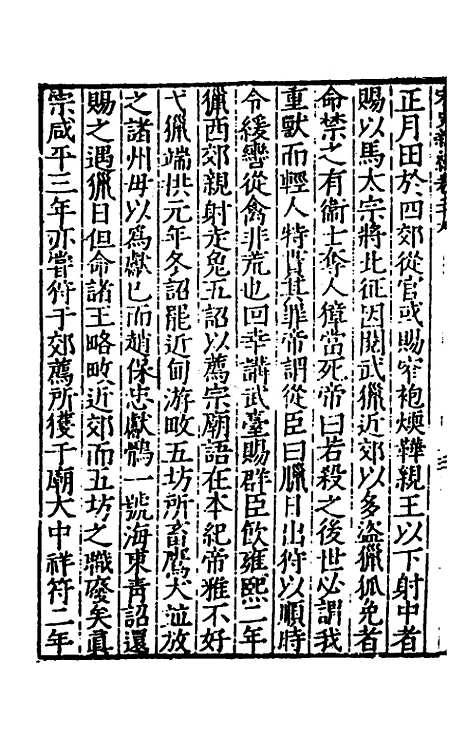 正月田於四郊從官或賜窄袍煖鞾親王以下射中者
賜以馬太宗將北征因閱武獵近郊以多盜獵狐兔者
命禁之有衞士奪人獐當死帝曰若殺之後世必謂我
重獸而輕人特貰其罪帝謂從臣曰臘日出狩以順時
令緩轡從禽非荒也回幸講武臺賜群臣飲雍熙二年
獵西郊親射走兔五詔以薦宗廟語在本紀帝雅不好
弋獵端拱元年冬詔罷近甸游畋五坊所畜鷹犬並放
之諸州毋以爲獻已而趙保忠獻鶻一號海東青詔還
賜之遇獵日但命諸王略畋近郊而五坊之職廢矣眞
宗咸平三年亦嘗狩于郊薦所獲于廟大中祥符二年